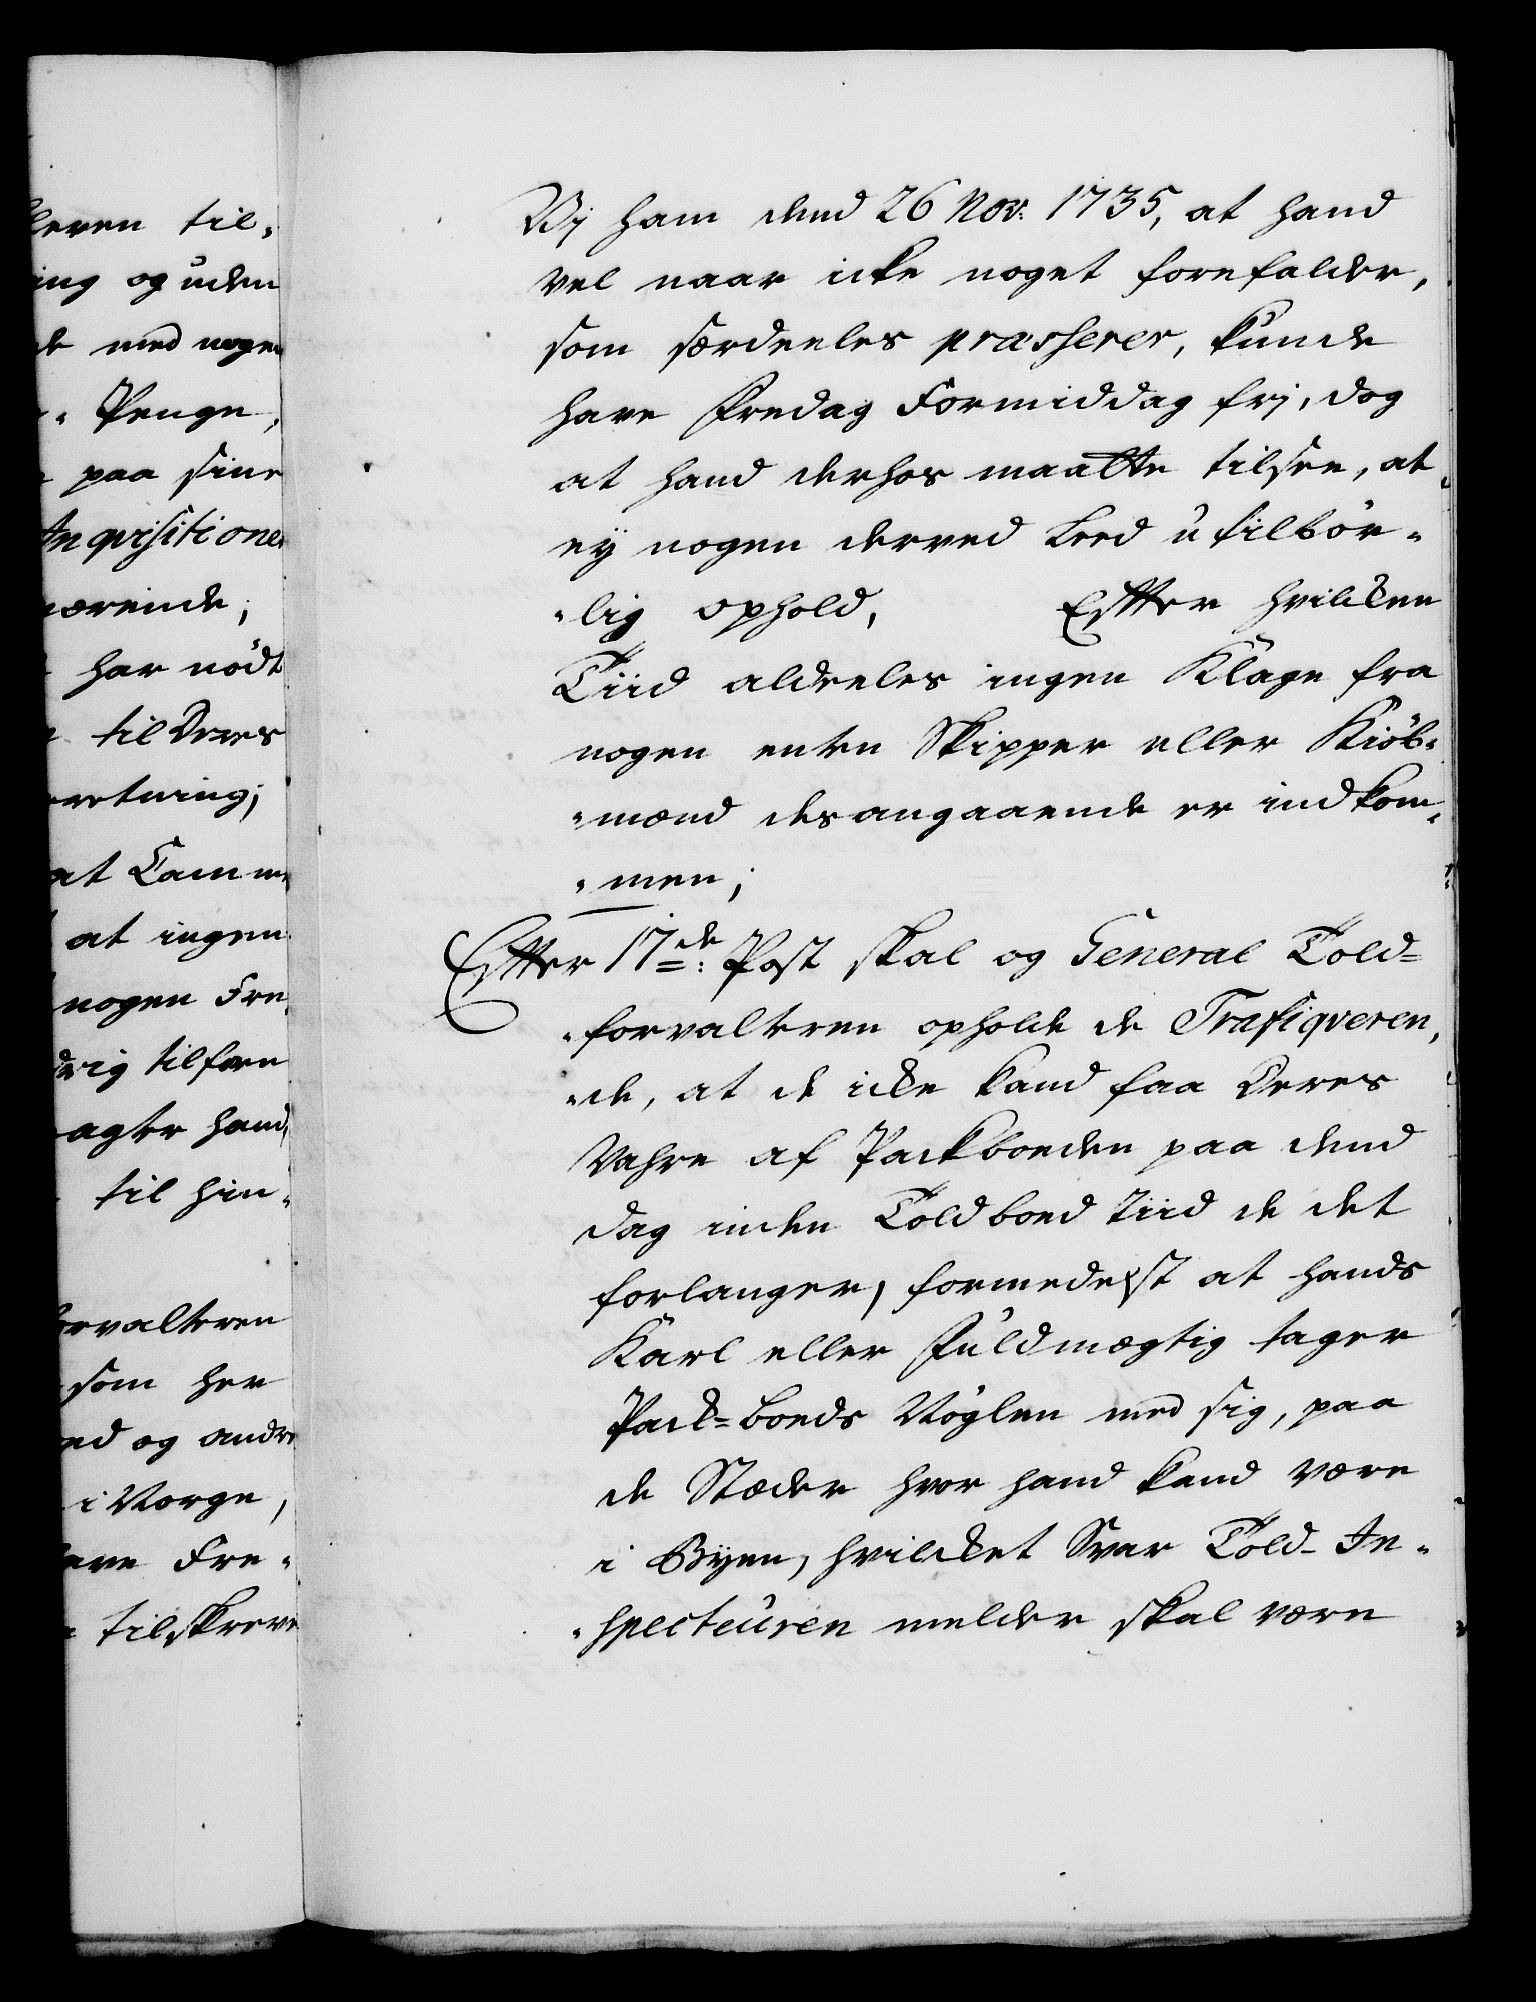 leven til-
ing og uden
de med nogen
Penge,
paa sine
Inqvisitione
værende,
har nødt
til Deres
retning;
at Camme
at ingen
nogen Fre
drig tilforn
agter hand,
til hin-
orvalteren
som her
ed og andre
i Norge,
ave Fre-
tilskreve
Vj ham dend 26 Nov: 1735, at hand
vel naar icke noget forefalder,
som særdeeles præsserer, kunde
have Fredag Formiddag frj, dog
at hand derhos maatte tilsee, at
ey nogen derved leed utilbør-
-lig ophold, Efter hvilcken
Tiid aldeeles ingen Klage fra
nogen enten Skipper eller Kiöb-
-mænd desangaaende er indkom-
-men;
Efter 17de: Post skal og General Told=
-forvalteren opholde de Trafiqveren,
-de, at de icke kand faa Deres
Vahre af Packboeden paa dend
Dag inden Toldboed Tiid de det
forlanger, formedelst at hands
Karl eller Fuldmægtig tager
Pack=boeds Nøglen med sig, paa
de Stæder hvor hand kand være
i Byen, hvilcket Svar Told-In-
-specteuren melder skal være